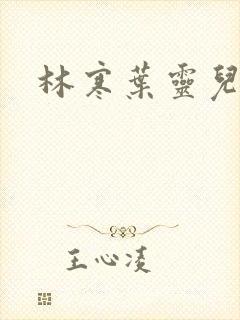 林寒葉靈兒
王心凌